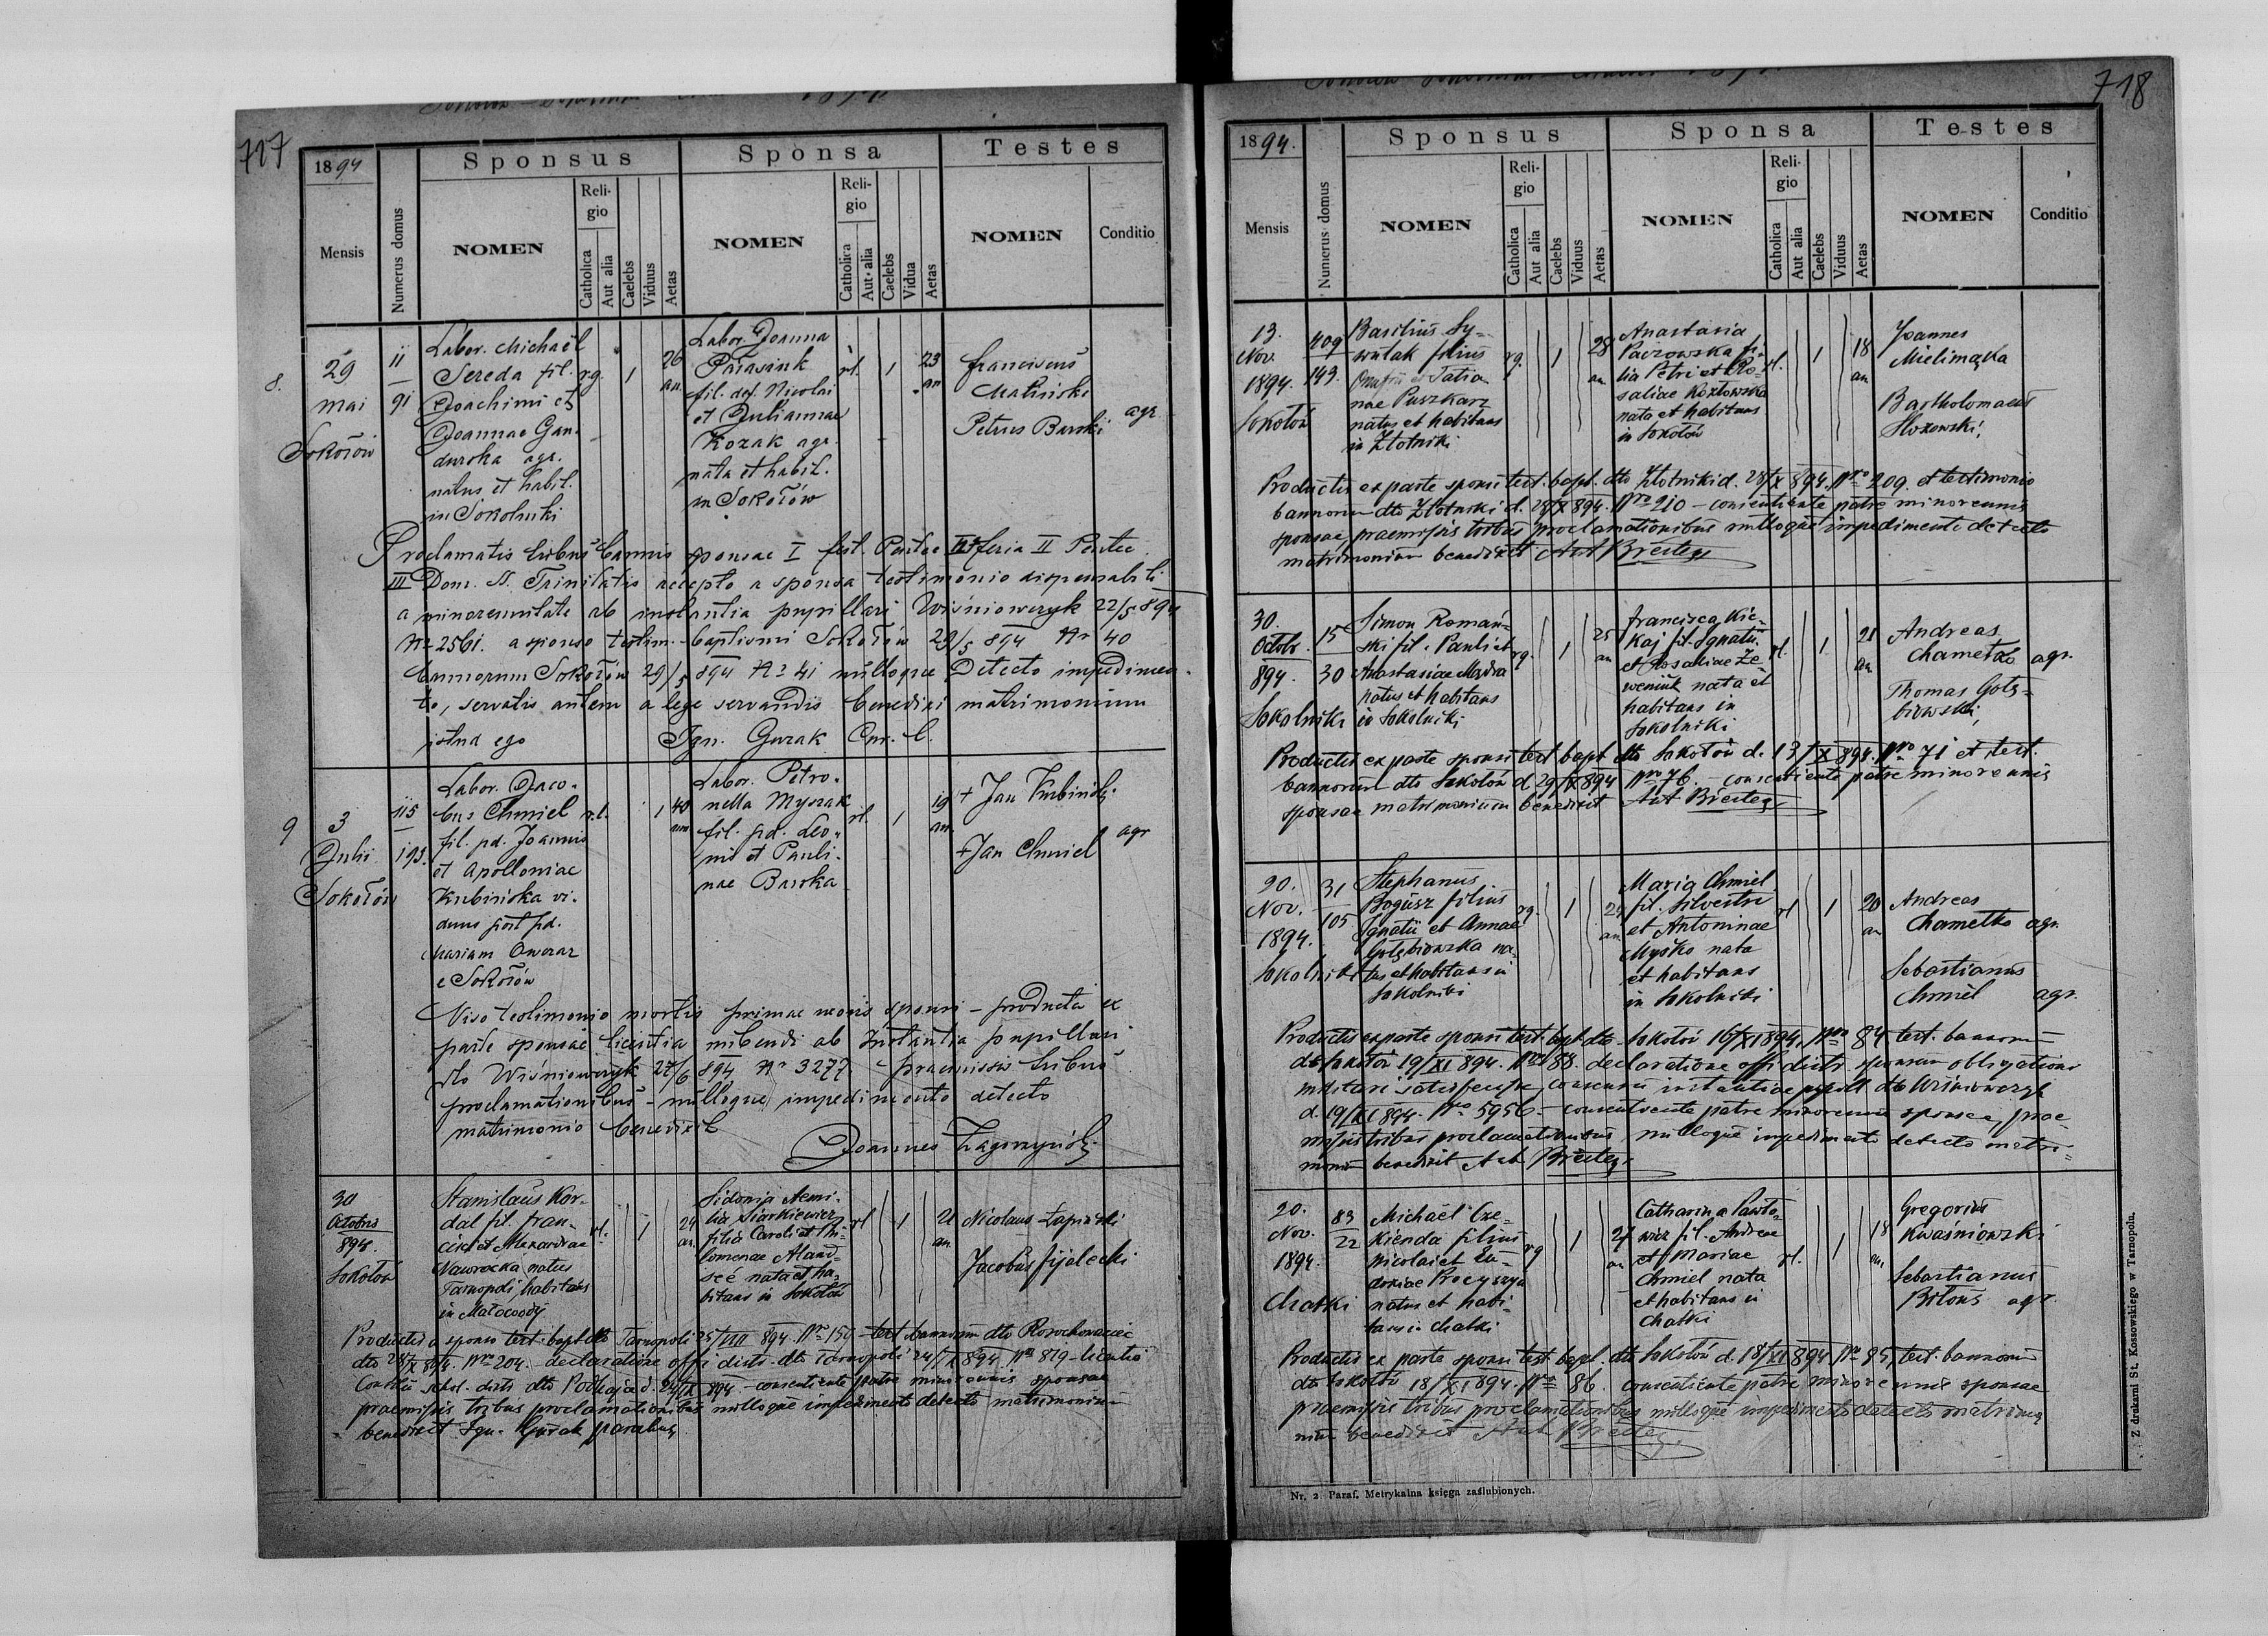 717
1894
Sponsus
Sponsa
Testes
Mensis
Numerus domus
NOMEN
Religio
Catholica
Aut alia
Caelebs
Viduus
Aetas
NOMEN
Religio
Catholica
Aut alia
Caelebs
Vidua
Aetas
NOMEN
Conditio
8.
29
Mai
Sokołów
11
91
Labor. Michaël
Sereda fil.
Joachimi et
Joannae Gan-
durska agr.
natus et habit.
in Sokolniki
rg.
1
26
an.
Labor. Joanna
Parasiuk
fil. def. Nicolai
et Juliannae
Kozak agr.
nata et habit.
in Sokołów
rl.
1
23
an
Franciscus
Maliński
Petrus Barski
agr
Proclamatis tribus bannis sponsae I fest. Pentec II feria II Pentec
III Dom. SS. Trinitatis accepto a sponsa testimonio dispensabili
a minorennitate ab instantia pupillari Wiśniowczyk 22/5 894
Nr 2561. a sponso testim. baptismi Sokołów 29/5 894 Nr 40
bannorum Sokołów 29/5 894 Nr 41 nulloque detecto impedimen-
to, servatis autem a lege servandis benedixi matrimonium
istud ego Ign. Gurak Cur. l.
9
3
Julii
Sokołów
115
193.
Labor. Jaco-
bus Chmiel
fil. pd. Joannis
et Apolloniae
Kubińska vi-
duus post pd.
Mariam Oworaz
e Sokołów
rl.
1
40
ann.
Labor. Petro-
nella Myszak
fil. pd. Leo-
nis et Pauli-
nae Barska
rl.
1
19
an.
+ Jan Kubiński
+ Jan Chmiel
agr
Viso testimonio mortis primae uxoris sponsi - producta ex
parte sponsae licentia nubendi ab Instantia pupillari
dto Wiśniowczyk 27/6 894 Nr 3277 - praemissis tribus
proclamationibus - nulloque impedimento detecto
matrimonio benedixit
Joannes Zagrzyński
30
Octobris
894.
Sokołów
Stanislaus Kor-
dal fil. Fran-
cisci et Alexandrae
Nawrocka natus
Tarnopoli, habitans
in Małowody
rl.
1
24
an.
Sidonia Aemi-
lia Siarkiewicz
filia Caroli et Phi-
lomenae
nata et ha-
bitans in Sokołów
rl
1
21
an
Nicolaus Łapiński
Jacobus Fijałecki
Productis a sponso test. bapt. dto Tarnopoli 25/VIII 894. Nro 150 - test bannorum dto Rosochowaciec
dto 28/X 894. Nro 204. declaratione offi distr. dto Tarnopoli 24/X 894. Nro 819 - licentia
Consilii schol. distr dto Podhajce d. 24/IX 894 - consentiente patre minorennis sponsae
praemissis tribus proclamationibus nulloque impedimento detecto matrimonium
benedixit Ign. Gurak parochus
718
1894.
Sponsus
Sponsa
Testes
Mensis
Numerus domus
NOMEN
Religio
Catholica
Aut alia
Caelebs
Viduus
Aetas
NOMEN
Religio
Catholica
Aut alia
Caelebs
Viduus
Aetas
NOMEN
Conditio
13.
Nov.
1894.
Sokołów
409
143.
Basilius Sy-
wulak filius
Onufrii et Tatia-
nae Puszkarz
natus et habitans
in Złotniki
rg.
1
28
an
Anastasia
Paczowska fi-
lia Petri et Ro-
saliae Kozłowska
nata et habitans
in Sokołów
rl.
1
18
an
Joannes
Mielimączka
Bartholomaeus
Słozowski,
Productis ex parte sponsi test. bapt. dto Złotniki d. 28/X 894. Nro 209. et testimonio
bannorum dto Złotniki d. 28/X 894. Nro 210 - consentiente patre minorennis
sponsae, praemissis tribus proclamationibus nulloque impedimento detecto
matrimonium benedixit Ant Brestega
30.
Octobr.
894.
Sokolniki
15
30
Simon Romań-
ski fil. Pauli et
Anastasiae Mądra
natus et habitans
in Sokolniki
rg.
1
25
an
Francisca Kie-
kaj fil. Ignatii
et Rosaliae Że-
weniuk nata et
habitans in
Sokolniki
rl.
1
21
an
Andreas
Chametko
agr.
Thomas Gołę-
biowski,
Productis ex parte sponsi test bapt dto Sokołów d. 13/X 894. Nro 71 et test.
bannorum dto Sokołów d 29/X 894 Nro 76. - consentiente patre minorennis
sponsae matrimonium benedixit Ant Brestega
20.
Nov.
1894.
Sokolniki
31
105
Stephanus
Bogusz filius
Ignatii et Annae
Gołębiowska na-
tus et habitans in
Sokolniki
rg.
1
24
an
Maria Chmiel
fil. Silvestri
et Antoninae
Myśko nata
et habitans
in Sokolniki
rl
1
20
an
Andreas
Chametko
agr.
Sebastianus
Chmiel
agr.
Productis ex parte sponsi test. bapt. dto Sokołów 16/XI 1894. Nro 84 test. bannorum
dto Sokołów 19/XI 894. Nro 88. declaratione offi distr. sponsum obligationi
militari satisfecisse, consensu instantiae pupill. dto Wiśniowczyk
d. 19/XI 894. Nro 5956 - consentiente patre minorennis sponsae, prae-
missis tribus proclamationibus, nulloque impedimento detecto matri-
monium benedixit Ant Brestega
20.
Nov.
1894.
Chatki
83
22
Michaël Cze-
kienda filius
Nicolai et Eu-
doxiae Procyszyn
natus et habi-
tans in Chatki
rg
1
27
an
Catharina Pawło-
wicz fil. Andreae
et Mariae
Chmiel nata
et habitans in
Chatki
rl.
1
18
an
Gregorius
Kwaśniowski
Sebastianus
Biłous agr.
Productis ex parte sponsi test bapt. dto Sokołów d. 18/XI 894 Nro 85, test. bannorum
dto Sokołów 18/XI 894. Nro 86. consentiente patre minorennis sponsae
praemissis tribus proclamationibus nulloque impedimento detecto matrimo-
nium benedixit Ant Brestega
Nr. 2 Paraf. Metrykalna księga zaślubionych.
Z drukarni St. Kossowskiego w Tarnopolu.